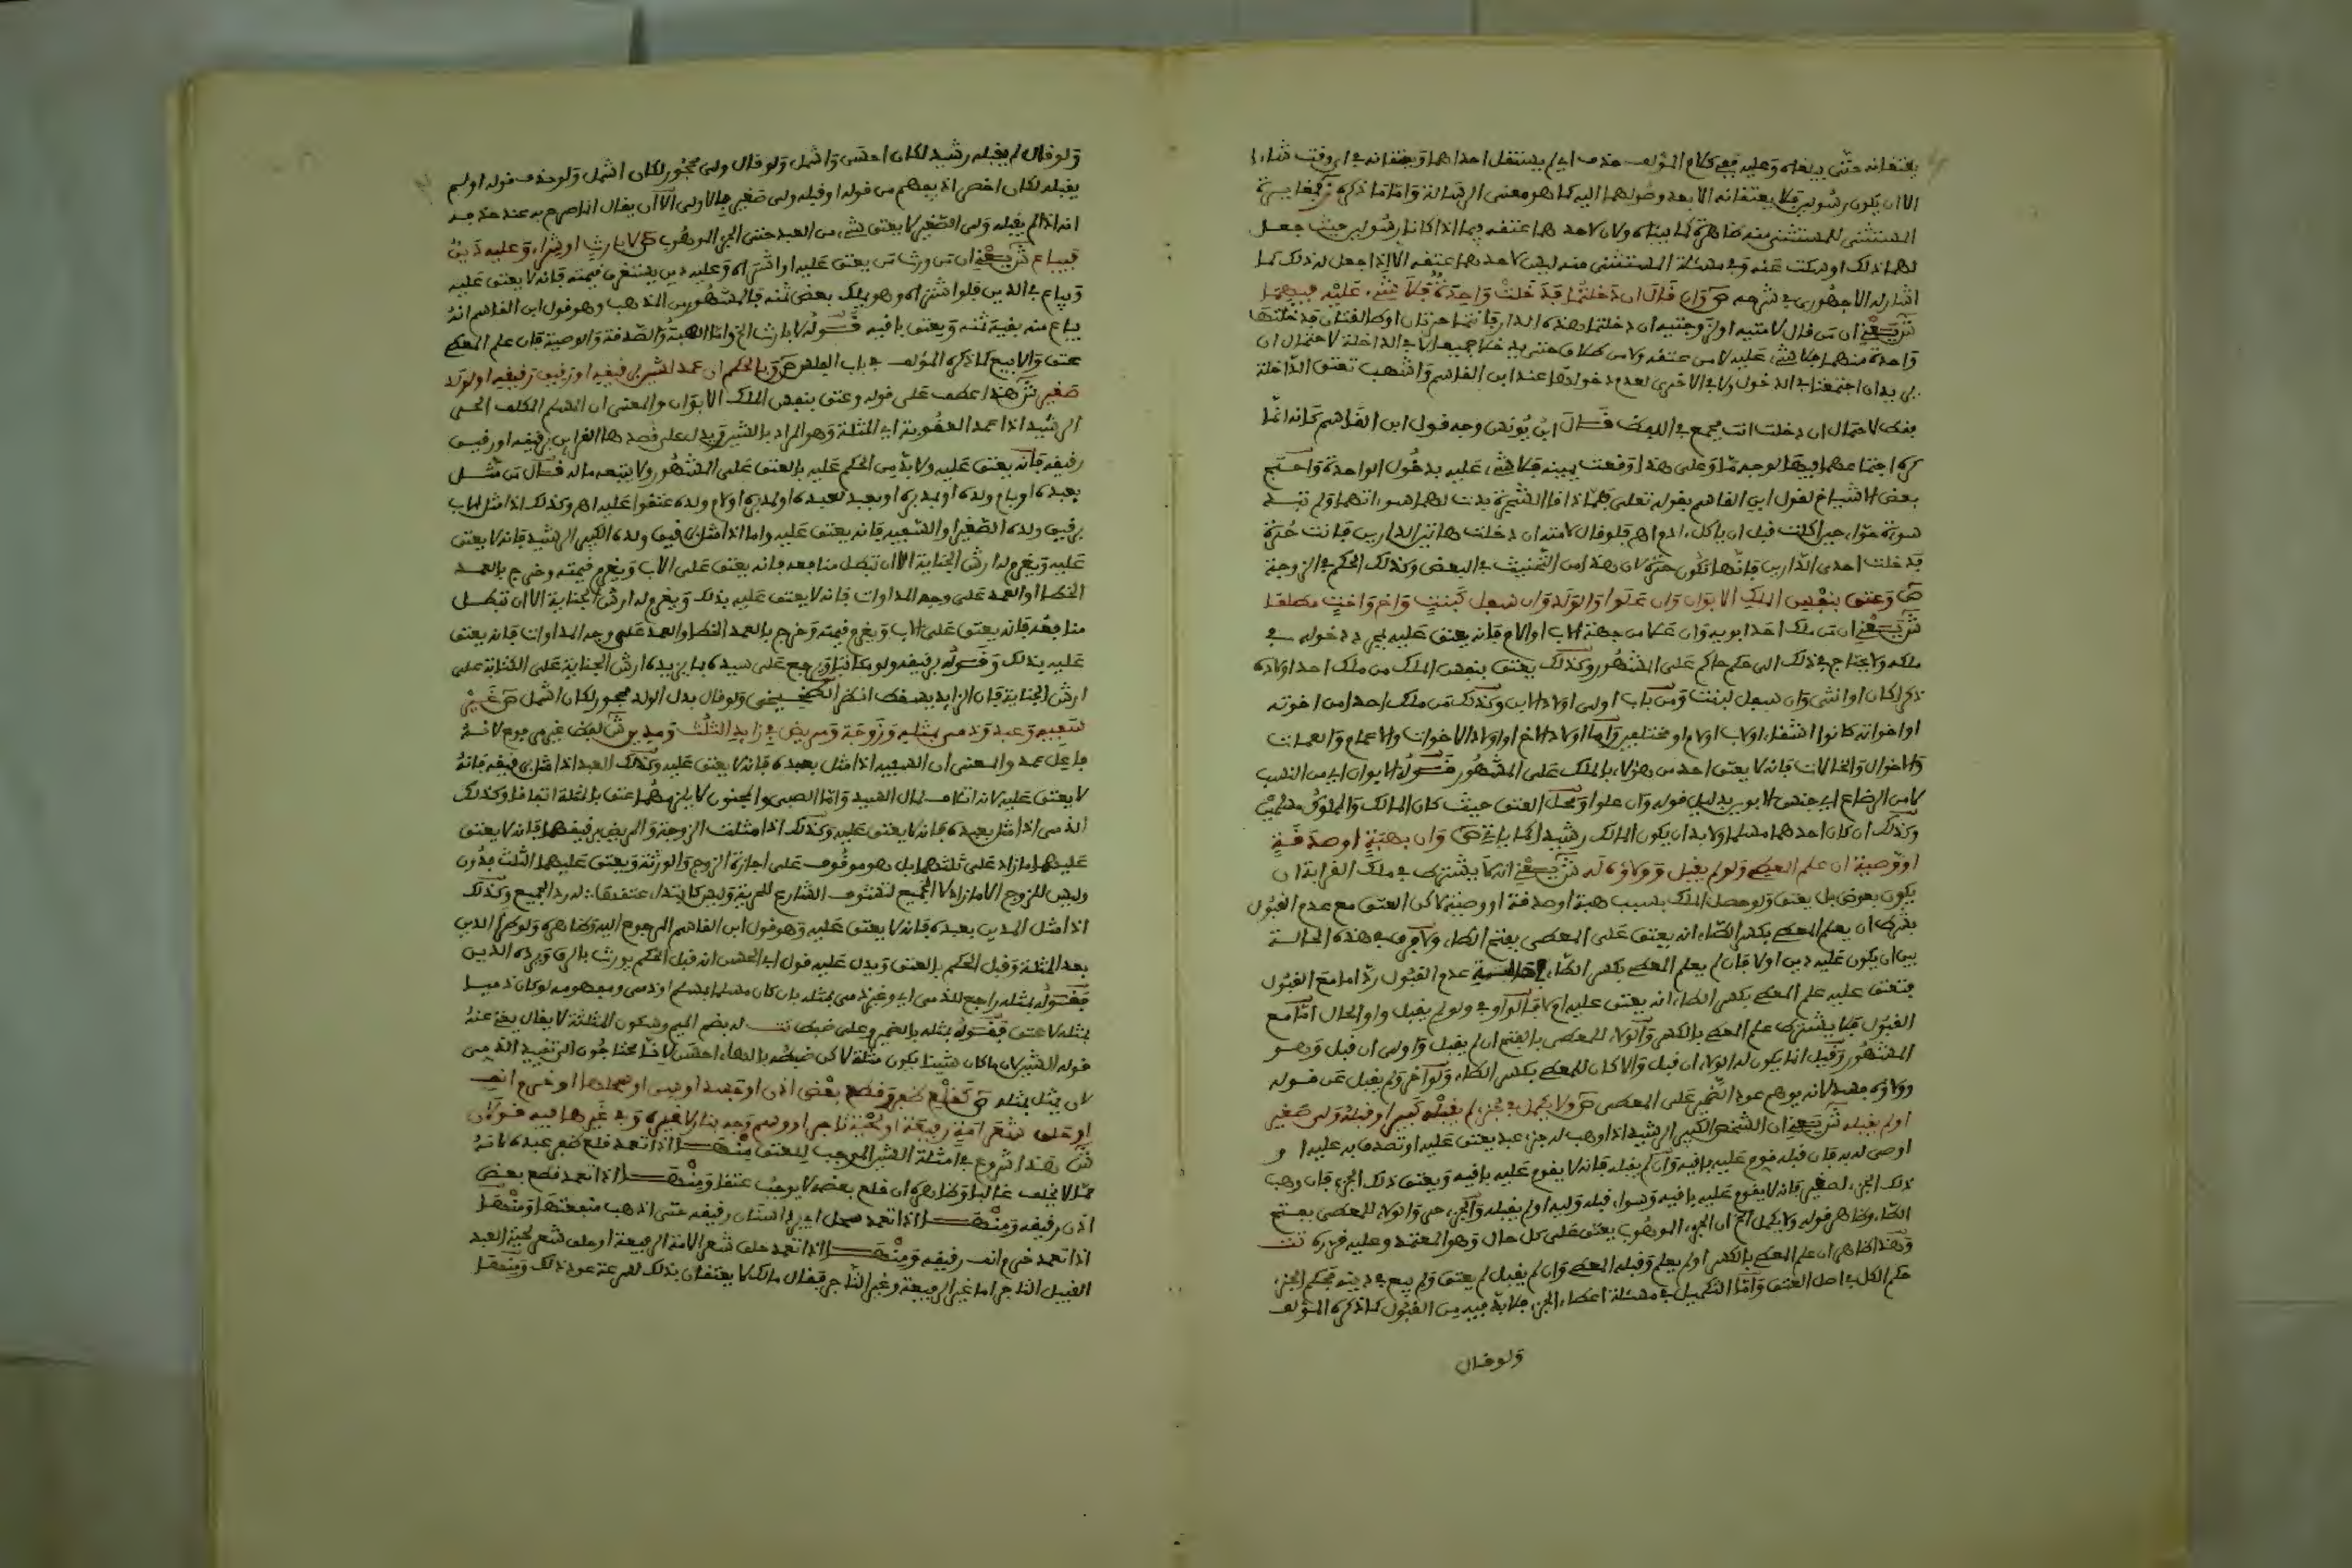 يعتقانه حتى يبلغاه وعليه ففي كلام المؤلف حذف اي لم يستقل احدهما ويعتقانه في اي وقت شاءا
الا ان يكون رسولين فلا يعتقانه الا بعد وصولهما اليه كما هو معنى الرسالة واما ما ذكره
المستثنى للمستثنى منه ظاهرة كما بيناه ولان لاحدهما عتقه فيما اذا كانا رسولين حيث جعل
لهما ذلك او سكت عنه وفي مسئلة المستثنى منه ليس لاحدهما عتقه الا اذا جعل له ذلك كما
اشار له الاجهوري في شرحه ص وان قال ان دخلتما فدخلت واحدة فلا شيء عليه فيهما
ش يعني ان من قال لامتيه او لزوجتيه ان دخلتما هذه الدار فانتما حرتان او طالقتان فدخلتها
واحدة منهما فلا شيء عليه لا من عتقه ولا من طلاق حتى يدخلا جميعا لا في الداخلة لاحتمال ان
يريد ان اجتمعتما في الدخول ولا في الاخرى لعدم دخولها عند ابن القاسم واشهب تعتق الداخلة
فقط لاحتمال ان دخلت انت فجمع في اللفظ قال ابن يونس وجه قول ابن القاسم كانه انما
كره اجتماعهما فيها لوجه ما وعلى هذا وقعت يمينه فلا شيء عليه بدخول الواحدة واحتج
بعض الاشياخ لقول ابن القاسم بقوله تعلى فلما ذاقا الشجرة بدت لهما سوءاتهما ولم تبد
سوءة حواء حين اكلت قبل ان ياكل ادم اهـ فلو قال لامته ان دخلت هاتين الدارين فانت حرة
فدخلت احدى الدارين فانها تكون حرة لان هذا من التحنيث في البعض وكذلك الحكم في الزوجة
ص وعتق بنفس الملك الابوان وان علوا والولد وان سفل كبنت واخ واخت مطلقا
ش يعني ان من ملك احد ابويه وان علا من جهة الاب او الام فانه يعتق عليه بمجرد دخوله في
ملكه ولا يحتاج في ذلك الى حكم حاكم على المشهور وكذلك يعتق بنفس الملك من ملك احد اولاده
ذكرا كان او انثى وان سفل لبنت ومن باب اولى اولاد الابن وكذلك من ملك احدا من اخوته
او اخواته كانوا اشقاء او لاب او لام او مختلفين واما اولاد الاخ او اولاد الاخوات والاعمام والعمات
والاخوال والخالات فانه لا يعتق احد من هؤلاء بالملك على المشهور قوله الابوان اي من النسب
لا من الرضاع اي جنس الابوين بدليل قوله وان علوا ومحل العتق حيث كان المالك والمملوك مسلمين
وكذلك ان كان احدهما مسلما ولا بد ان يكون المالك رشيدا كما ياتي ص وان بهبة او صدقة
او وصية ان علم المعطي ولو لم يقبل وولاؤه له ش يعني انه لا يشترط في ملك القرابة ان
يكون بعوض بل يعتق ولو حصل الملك بسبب هبة او صدقة او وصية لاكن العتق مع عدم القبول
بشرط ان يعلم المعطي بكسر الطاء انه يعتق على المعطى بفتح الطاء ولا فرق في هذه الحالة
بين ان يكون عليه دين او لا فان لم يعلم المعطي بكسر الطاء عدم القبول ردا اما مع القبول
فيعتق عليه علم المعطي بكسر الطاء انه يعتق عليه او لا فالواو في ولو لم يقبل واو الحال اما مع
القبول فلا يشترط علم المعطي بالكسر والولاء للمعطى بالفتح ان لم يقبل واولى ان قبل وهو
المشهور وقيل انما يكون له الولاء ان قبل والا كان للمعطي بكسر الطاء ولو اخر ولم يقبل عن قوله
وولاؤه لانه يوهم عود الضمير على المعطى ص ولا يكمل في جزء لم يقبله كبير او قبله ولي صغير
او لم يقبله ش يعني ان الشخص الكبير الرشيد اذا وهب له جزء عبد يعتق عليه او تصدق به عليه او
اوصي له به فان قبله قوم عليه باقيه وان لم يقبله فانه لا يقوم عليه باقيه ويعتق ذلك الجزء فان وهب
ذلك الجزء لصغير فانه لا يقوم عليه باقيه وسواء قبله وليه او لم يقبله والجزء حر والولاء للمعطى بفتح
الطاء وظاهر قوله ولا يكمل الخ ان الجزء الموهوب يعتق على كل حال وهو المعتمد وعليه قرره تت
وهذا ظاهر ان علم المعطي بالكسر او لم يعلم وقبله المعطى وان لم يقبل لم يعتق ولم يبع في دينه فحكم الجزء
حكم الكل في اصل العتق واما التكميل في مسئلة اعطاء الجزء فلا بد فيه من القبول كما ذكره المؤلف
ولو قال
ولو قال لم يقبله رشيد لكان احسن واشمل ولو قال ولي محجور لكان اشمل ولو حذف قوله او لم
يقبله لكان اخصر اذ يفهم من قوله او قبله ولي صغير بالاولى الا ان يقال انما صرح به عند حذفه
انه اذا لم يقبله ولي الصغير لا يعتق شيء من العبد حتى الجزء الموهوب ص لا بارث او شراء وعليه دين
فيباع ش يعني ان من ورث من يعتق عليه او اشتراه وعليه دين يستغرق قيمته فانه لا يعتق عليه
ويباع في الدين فلو اشتراه وهو يملك بعض ثمنه فالمشهور من المذهب وهو قول ابن القاسم انه
يباع منه ببقية ثمنه ويعتق باقيه قوله لا بارث الخ واما الهبة والصدقة والوصية فان علم المعطي
عتق والا بيع كما ذكره المؤلف في باب الفلس ص وبالحكم ان عمد لشين برقيقه او رقيق رقيقه او لولد
صغير ش هذا عطف على قوله وعتق بنفس الملك الابوان والمعنى ان المسلم المكلف الحر
الرشيد اذا عمد العقوبة اي المثلة وهو المراد بالشين ويدل على قصدها القرائن برقيقه او رقيق
رقيقه فانه يعتق عليه ولا بد من الحكم عليه بالعتق على المشهور ولا يتبعه ماله قال من مثل
بعبده او بام ولده او بمدبره او بعبد لعبده او لمدبره او لام ولده عتقوا عليه اهـ وكذلك اذا مثل الاب
برقيق ولده الصغير او السفيه فانه يعتق عليه واما اذا مثل برقيق ولده الكبير الرشيد فانه لا يعتق
عليه ويغرم له ارش الجناية الا ان تبطل منافعه فانه يعتق على الاب ويغرم قيمته وخرج بالعمد
الخطا او العمد على وجه المداوات فانه لا يعتق عليه بذلك ويغرم له ارش الجناية الا ان تبطل
منافعه فانه يعتق على الاب ويغرم قيمته وخرج بالعمد الخطا والعمد على وجه المداوات فانه يعتق
عليه بذلك وقوله برقيقه ولو مكاتبا ويرجع على سيده بما يزيده ارش الجناية على الكتابة على
ارش الجناية فان الزايد يسقط انظر الطخيخي ولو قال بدل الولد محجور لكان اشمل ص غير
سفيه وعبد وذمي بمثله وزوجة ومريض في زايد الثلث ومدين ش لفظ غير مرفوع لانه
فاعل عمد والمعنى ان السفيه اذا مثل بعبده فانه لا يعتق عليه وكذلك العبد اذا مثل برقيقه فانه
لا يعتق عليه لانه اتلاف لمال السيد واما الصبي والمجنون لا يلزمهما عتق بالمثلة اتفاقا وكذلك
الذمي اذا مثل بعبده فانه لا يعتق عليه وكذلك اذا مثلت الزوجة والمريض برقيقهما فانه لا يعتق
عليهما ما زاد على ثلثهما بل هو موقوف على اجازة الزوج والورثة ويعتق عليهما الثلث فدون
وليس للزوج الا ما زاد لا الجميع لتشوف الشارع للحرية وليس كابتداء عتقها له رد الجميع وكذلك
اذا مثل المدين بعبده فانه لا يعتق عليه وهو قول ابن القاسم المرجوع اليه وظاهره ولو طرا الدين
بعد المثلة وقبل الحكم بالعتق ويدل عليه قول ابي الحسن انه قبل الحكم يورث بالرق ويرده الدين
فقوله بمثله راجع للذمي اي وغير ذمي بمثله بان كان مسلما بمسلم او ذمي ومفهومه لو كان ذميا
بمثله لا عتق فقوله بمثله بالضمير وعلى ضبط تت له بضم الميم وسكون المثلثة لا يقال يغني عنه
قوله لشين لان ما كان شينا يكون مثلة لاكن ضبطه بالهاء احسن لانا محتاجون الى تقييد الذمي
لان يمثل بمثله ص كقلع ظفر وقطع بعض اذن او جسد او سن او سحلها او خرم انف
او حلق شعر امة رفيعة او لحية تاجر او وسم وجه بنار لا غيره وفي غيرها فيه قولان
ش هذا شروع في امثلة الشين الموجب للعتق منها اذا تعمد قلع ظفر عبده لانه
مما لا يخلف غالبا وظاهره ان قلع بعضه لا يوجب عتقا ومنها اذا تعمد قطع بعض
اذن رقيقه ومنها اذا تعمد سحل اي برد اسنان رقيقه حتى اذهب منفعتها ومنها
اذا تعمد خرم انف رقيقه ومنها اذا تعمد حلق شعر الامة الرفيعة او حلق شعر لحية العبد
النبيل التاجر اما غير الرفيعة وغير التاجر فقال مالك لا يعتقان بذلك لسرعة عود ذلك ومنها